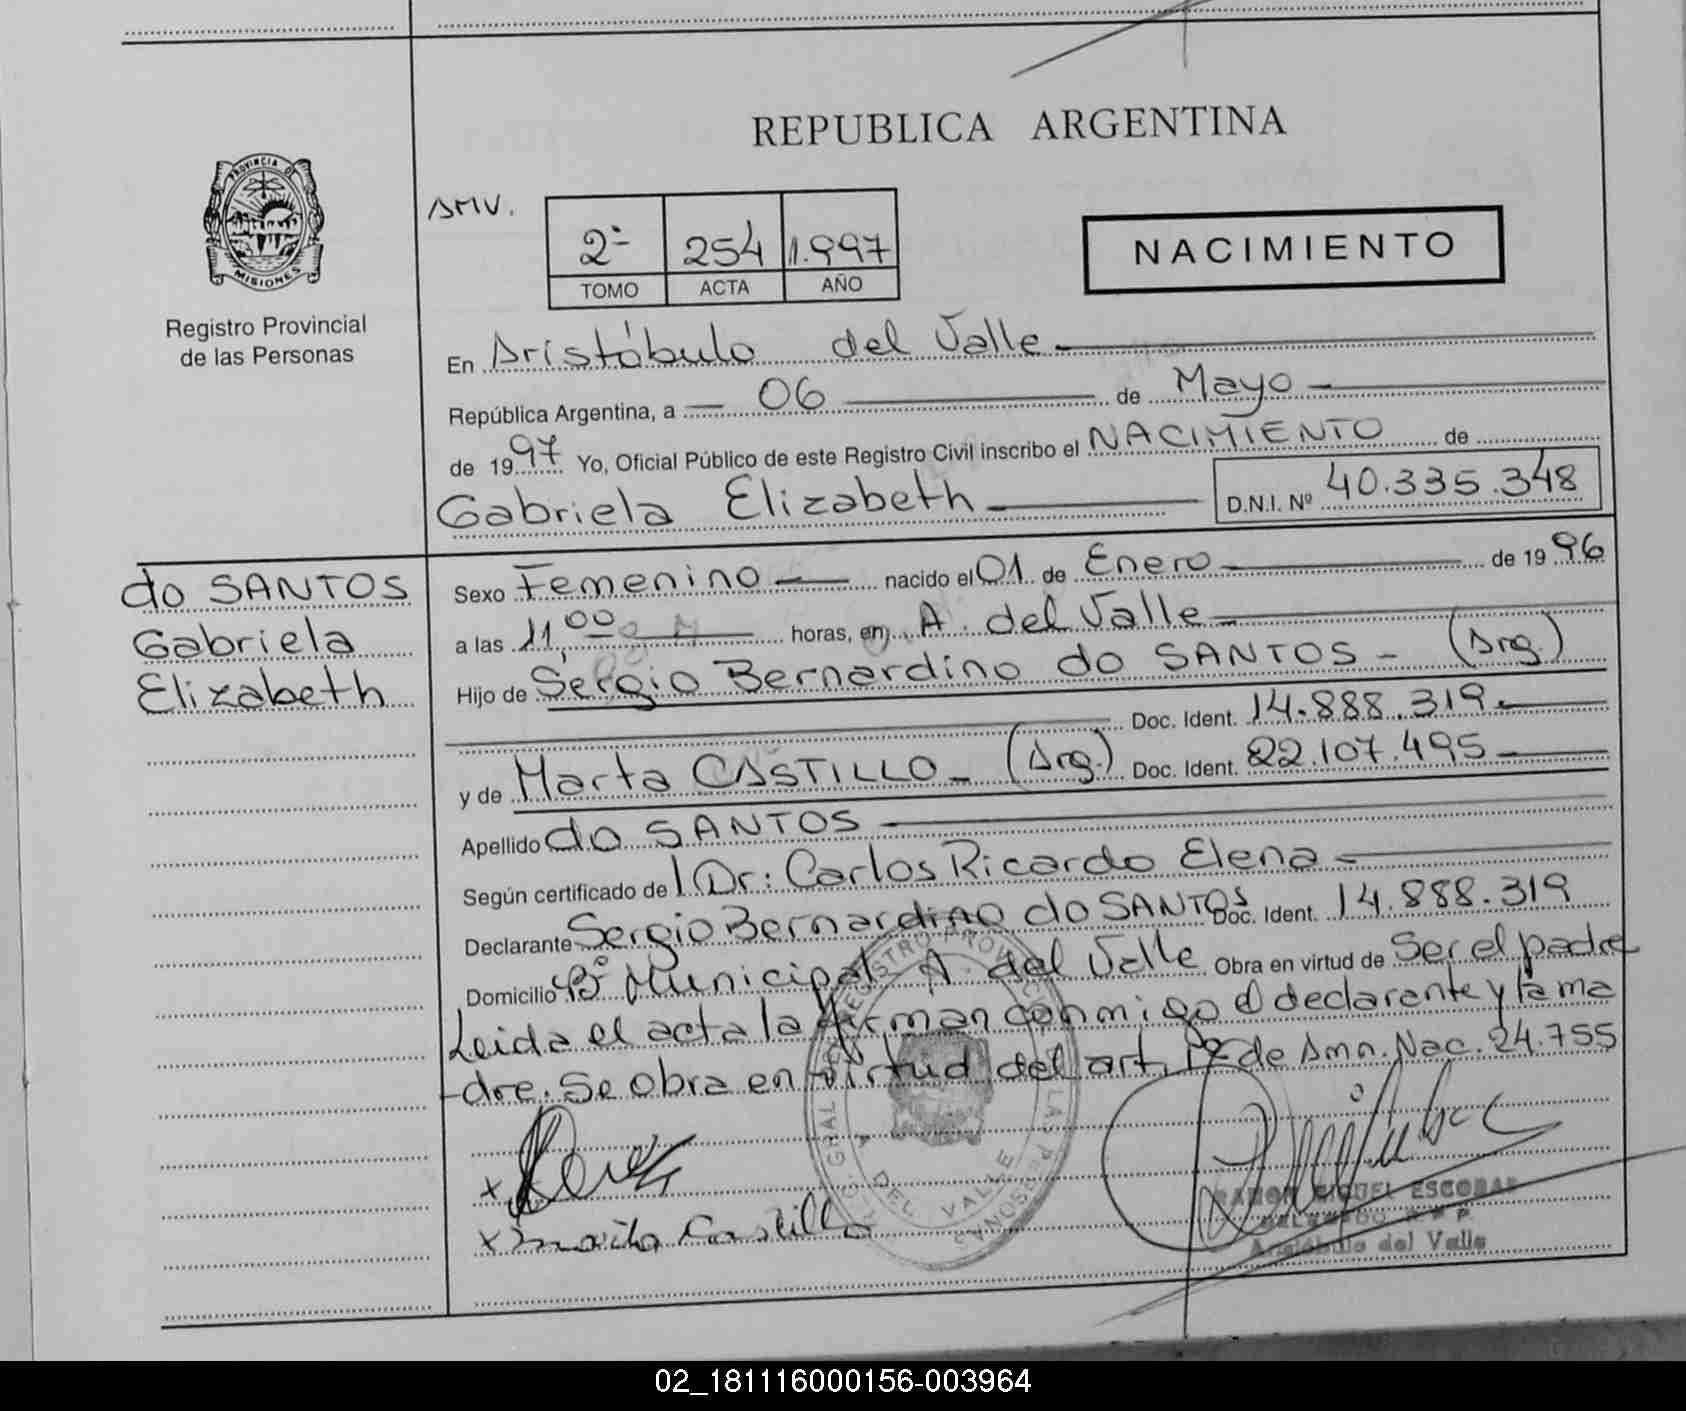 REPUBLICA ARGENTINA
PROVINCIA DE
MISIONES
Registro Provincial
de las Personas
AMV.
2º 254 1.997
TOMO ACTA AÑO
NACIMIENTO
En Aristóbulo del Valle
República Argentina, a 06 de Mayo
de 1997 Yo, Oficial Público de este Registro Civil inscribo el NACIMIENTO de
Gabriela Elizabeth D.N.I. Nº 40.335.348
do SANTOS
Gabriela
Elizabeth
Sexo Femenino nacido el 01 de Enero de 1996
a las 11,00 horas, en A. del Valle
Hijo de Sergio Bernardino do SANTOS - (Arg.)
Doc. Ident. 14.888.319
y de Marta CASTILLO - (Arg.) Doc. Ident. 22.107.495
Apellido do SANTOS
Según certificado de Dr: Carlos Ricardo Elena
Declarante Sergio Bernardino do SANTOS Doc. Ident. 14.888.319
Domicilio Bº Municipal A. del Valle Obra en virtud de Ser el padre
Leida el acta la firman conmigo el declarante y la ma
-dre. Se obra en virtud del art. 1º de Amn. Nac. 24.755
x
x Marta Castillo
DEL VALLE
RAMON MIGUEL ESCOBAR
DELEGADO R.P.P.
Aristóbulo del Valle
02_181116000156-003964